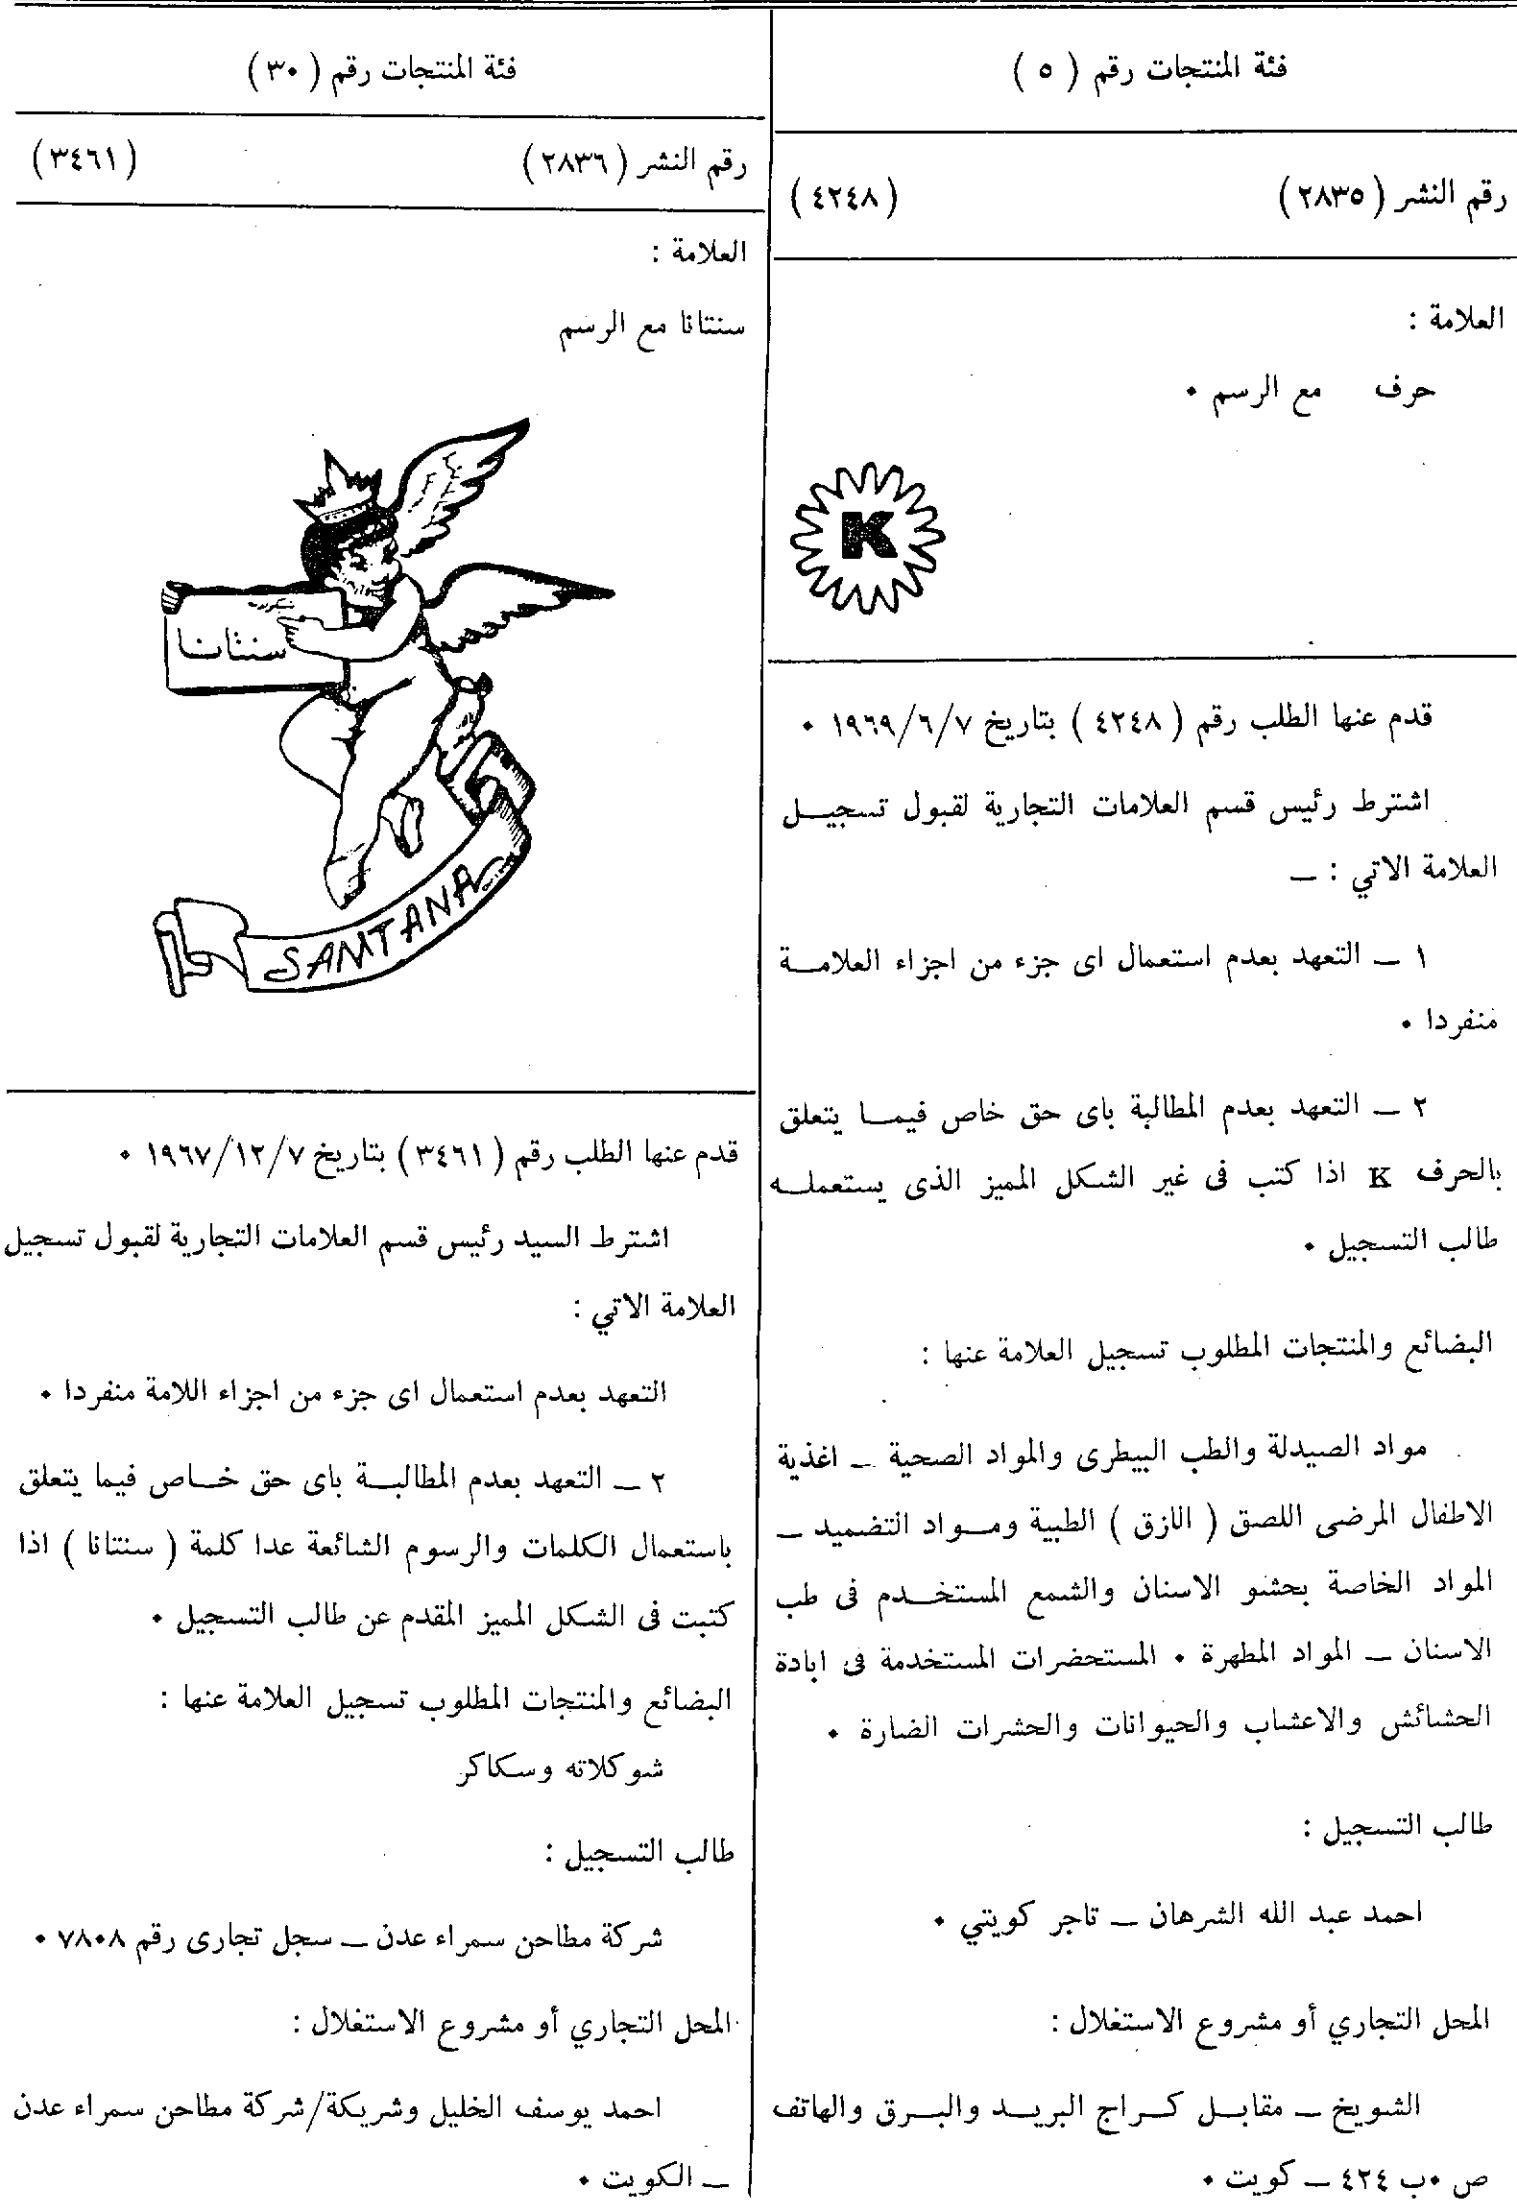 فئة المنتجات رقم ( ٥ )
رقم النشر ( ٢٨٣٥ ) ( ٤٢٤٨ )
العلامة :
حرف مع الرسم ٠
K
قدم عنها الطلب رقم ( ٤٢٤٨ ) بتاريخ ١٩٦٩/٦/٧ ٠
اشترط رئيس قسم العلامات التجارية لقبول تسجيــل
العلامة الاتي : ــ
١ ــ التعهد بعدم استعمال اى جزء من اجزاء العلامــة
منفردا ٠
٢ ــ التعهد بعدم المطالبة باى حق خاص فيمــا يتعلق
بالحرف K اذا كتب فى غير الشكل المميز الذى يستعملــه
طالب التسجيل ٠
البضائع والمنتجات المطلوب تسجيل العلامة عنها :
مواد الصيدلة والطب البيطرى والمواد الصحية ــ اغذية
الاطفال المرضى اللصق ( الازق ) الطبية ومــواد التضميد ــ
المواد الخاصة بحشو الاسنان والشمع المستخــدم فى طب
الاسنان ــ المواد المطهرة ٠ المستحضرات المستخدمة فى ابادة
الحشائش والاعشاب والحيوانات والحشرات الضارة ٠
طالب التسجيل :
احمد عبد الله الشرهان ــ تاجر كويتي ٠
المحل التجاري أو مشروع الاستغلال :
الشويخ ــ مقابــل كــراج البريــد والبــرق والهاتف
ص ٠ب ٤٢٤ ــ كويت ٠
فئة المنتجات رقم ( ٣٠ )
رقم النشر ( ٢٨٣٦ ) ( ٣٤٦١ )
العلامة :
سنتانا مع الرسم
سنتانا
SAMTANA
قدم عنها الطلب رقم ( ٣٤٦١ ) بتاريخ ١٩٦٧/١٢/٧ ٠
اشترط السيد رئيس قسم العلامات التجارية لقبول تسجيل
العلامة الاتي :
التعهد بعدم استعمال اى جزء من اجزاء اللامة منفردا ٠
٢ ــ التعهد بعدم المطالبــة باى حق خــاص فيما يتعلق
باستعمال الكلمات والرسوم الشائعة عدا كلمة ( سنتانا ) اذا
كتبت فى الشكل المميز المقدم عن طالب التسجيل ٠
البضائع والمنتجات المطلوب تسجيل العلامة عنها :
شوكلاته وسكاكر
طالب التسجيل :
شركة مطاحن سمراء عدن ــ سجل تجارى رقم ٧٨٠٨ ٠
المحل التجاري أو مشروع الاستغلال :
احمد يوسف الخليل وشريكة/شركة مطاحن سمراء عدن
ــ الكويت ٠